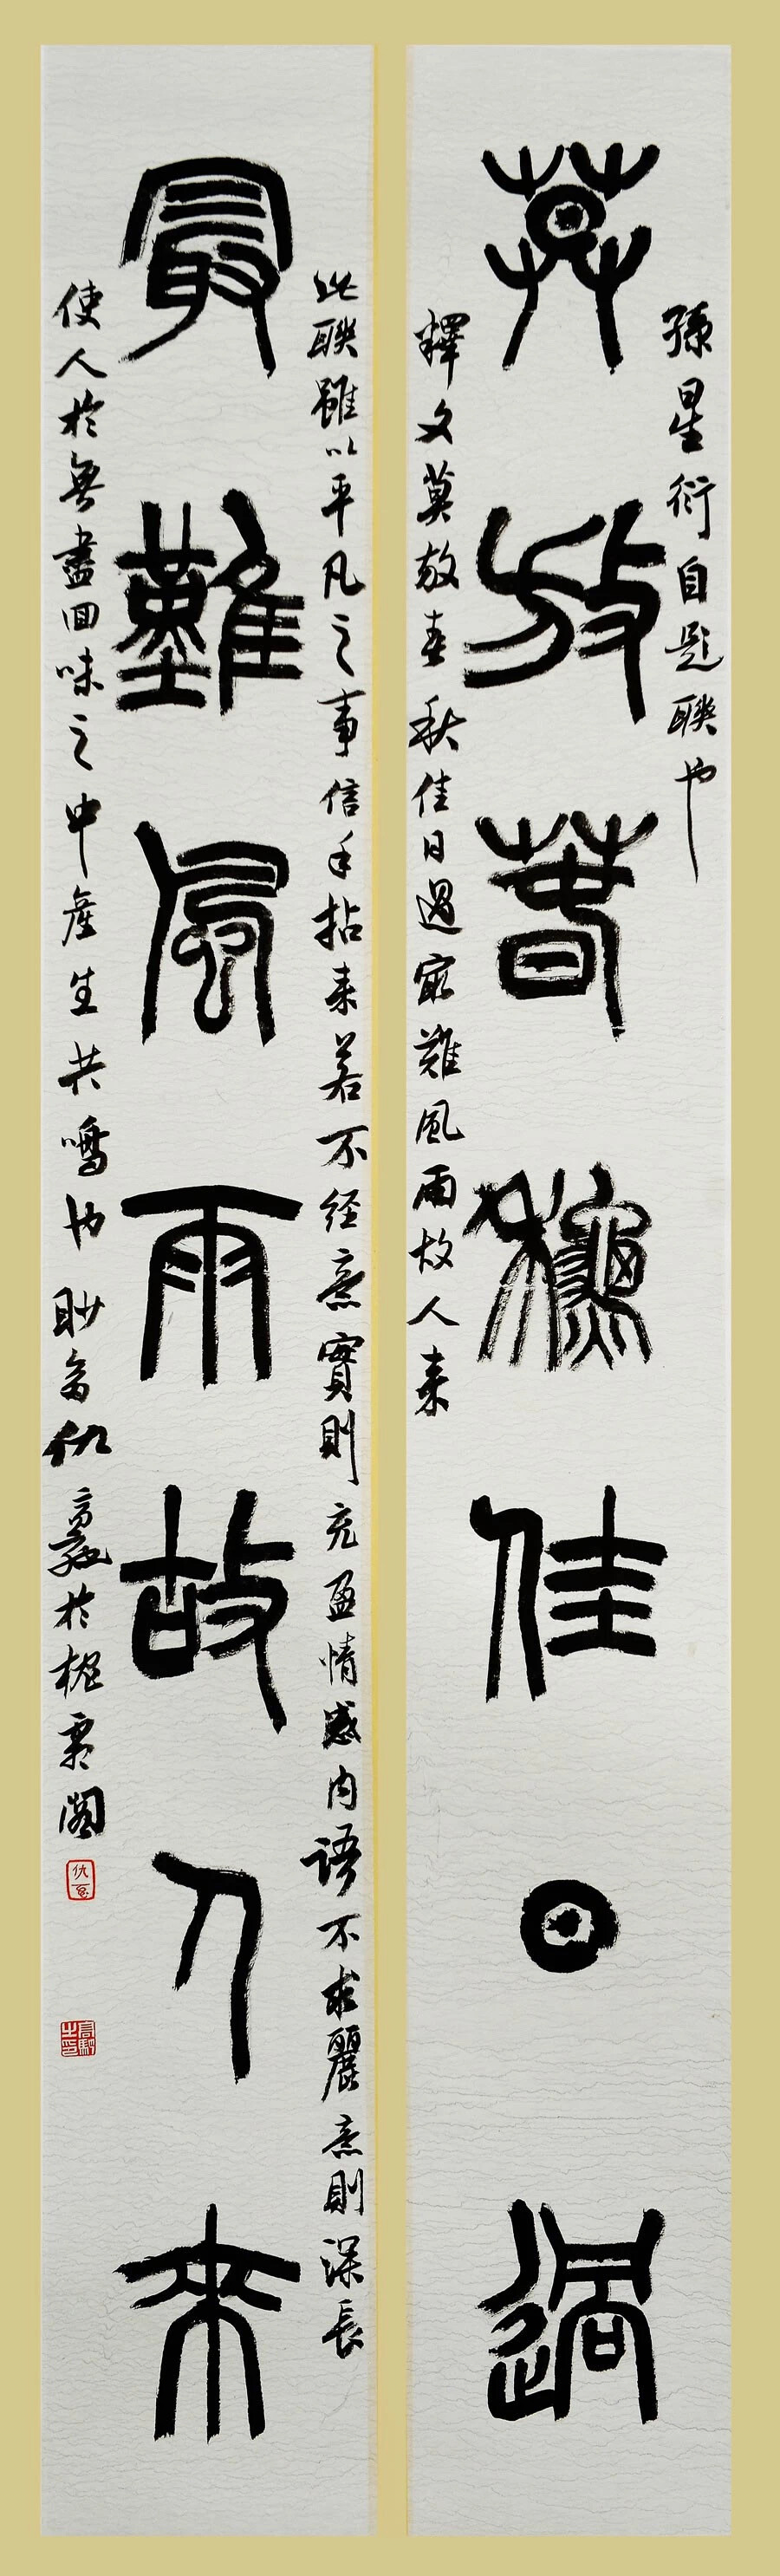 孫星衍自題聯也
莫放春秋佳日過
釋文莫放春秋佳日過㝡難風雨故人来
此聯雖以平凡之事信手拈来若不经意實則充盈情感内语不求麗意則深長
最難風雨故人来
使人於無盡回味之中產生共鳴也眇翁仇於閣